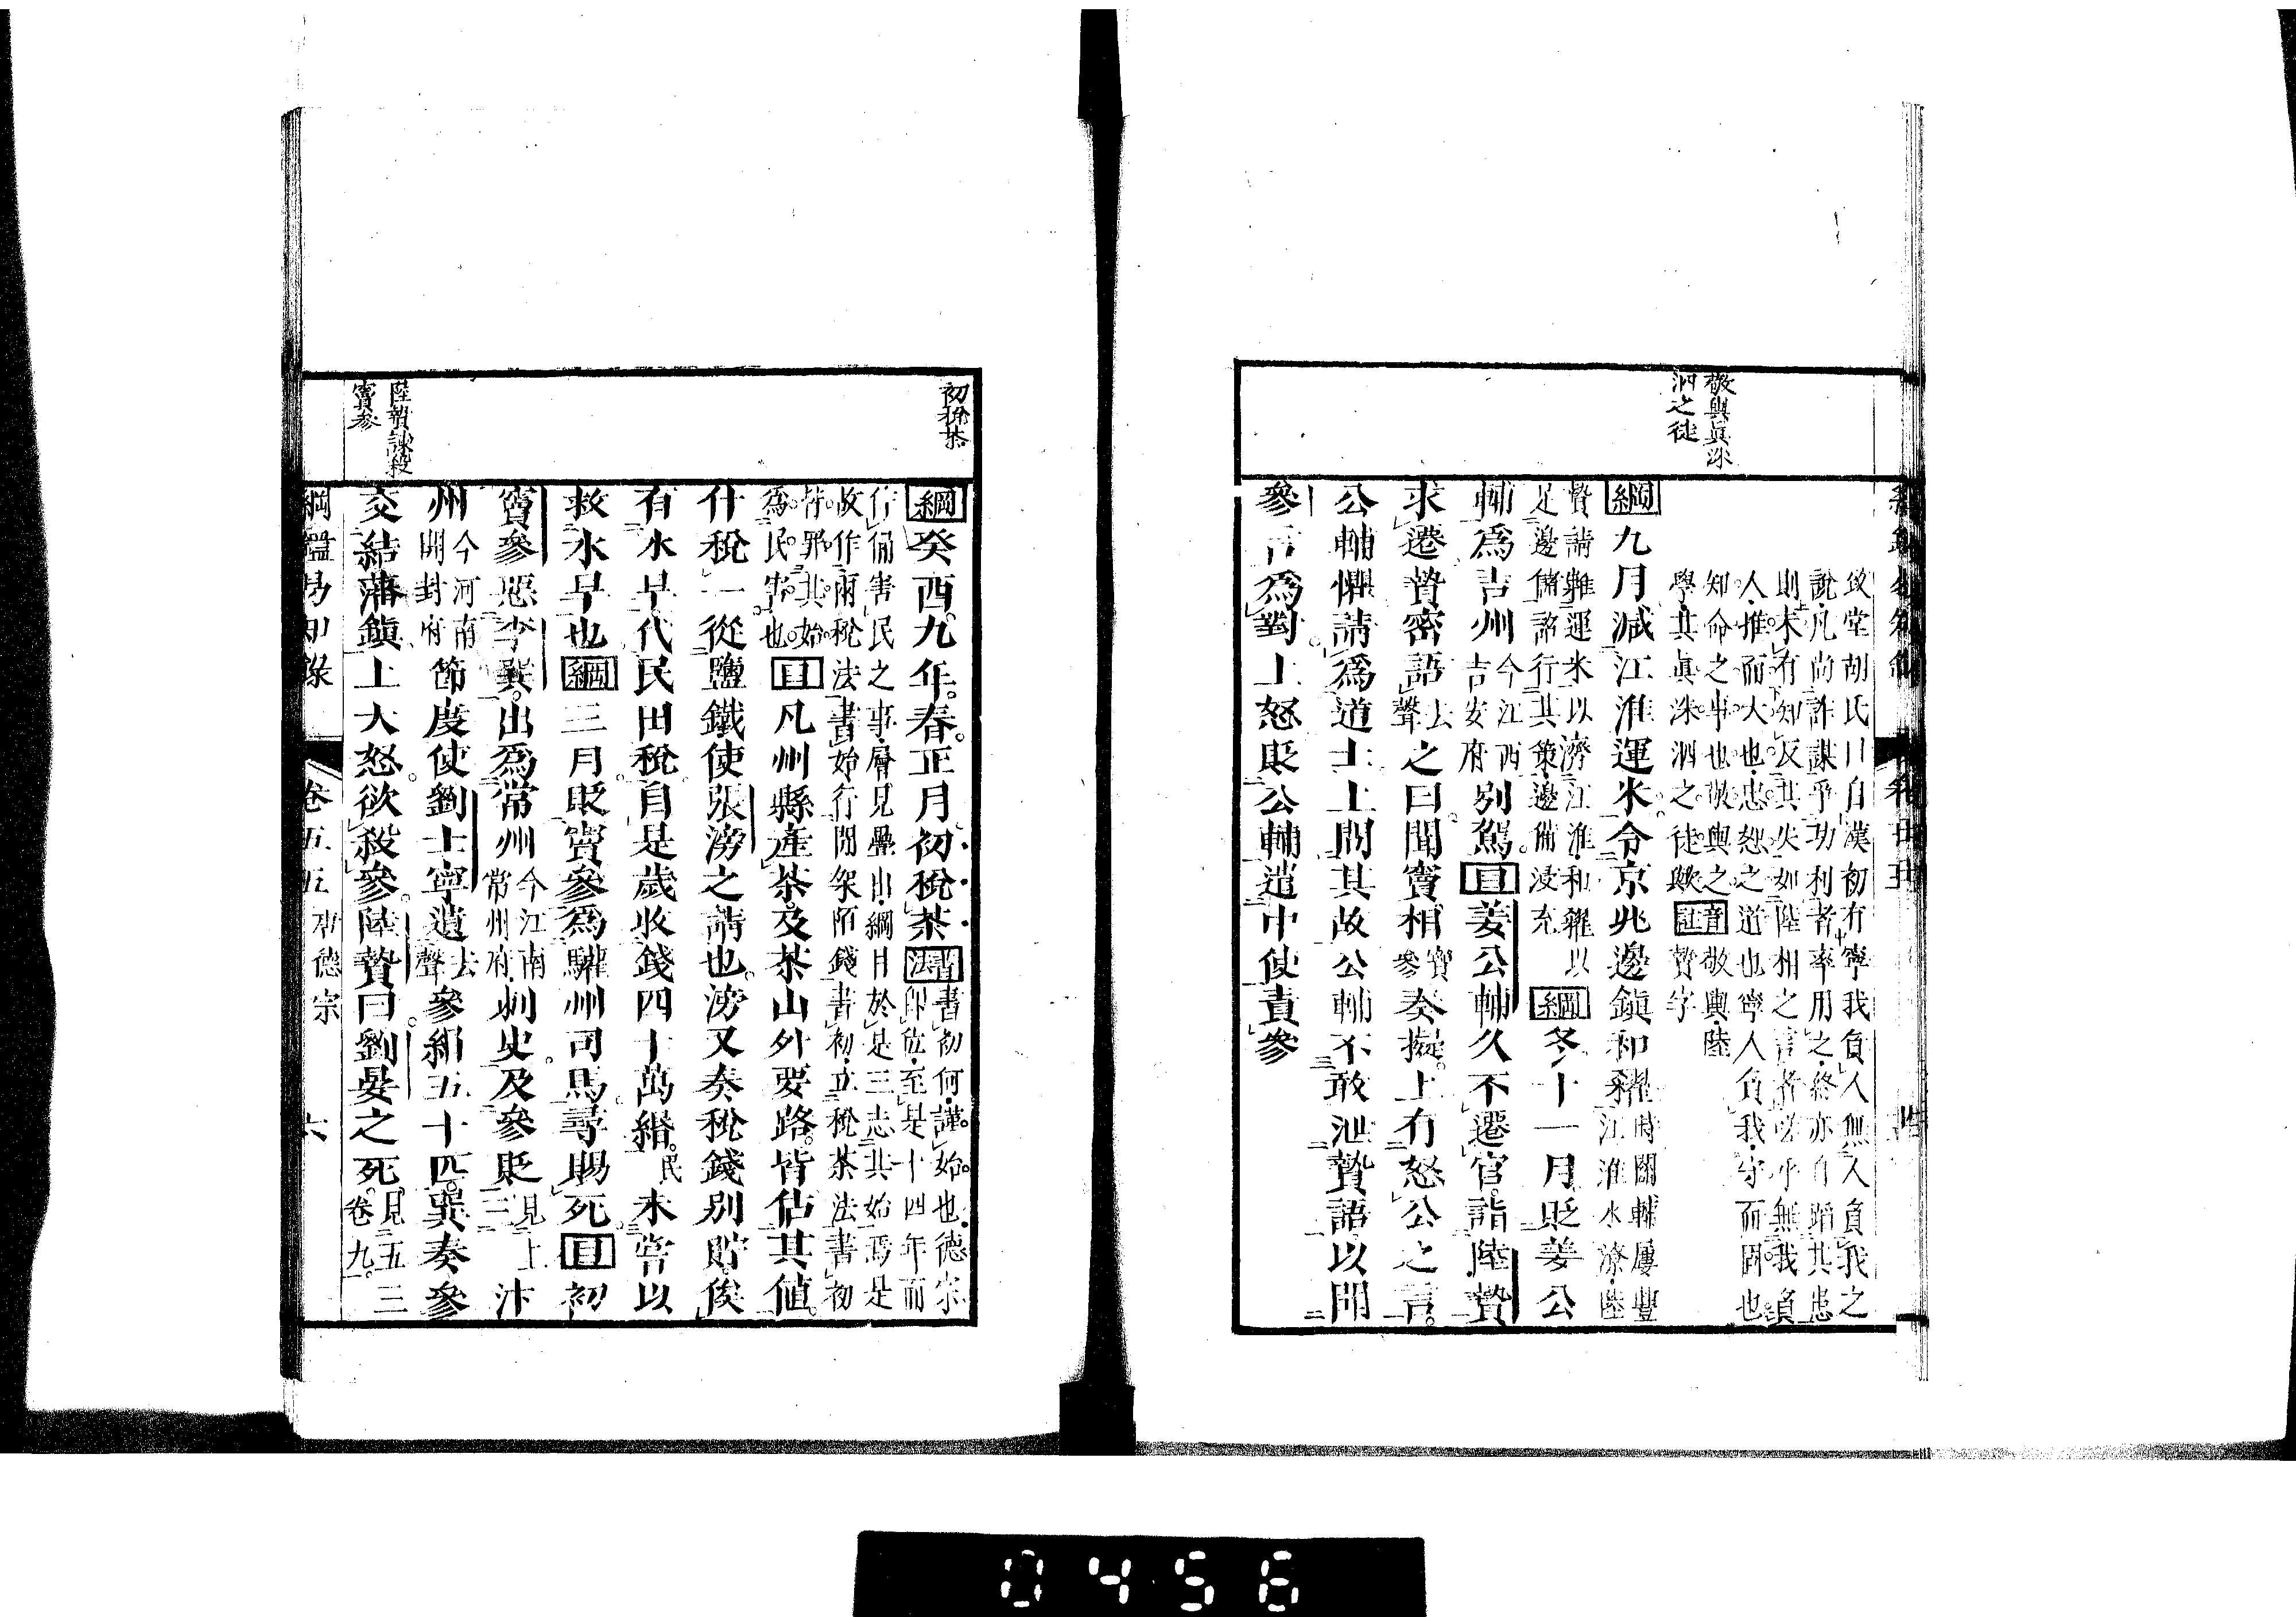 敬輿眞洙
泗之徒
致堂胡氏曰自漢初有寧我負人無人負我之
說凡尚詐謀乎功利者率用之終亦自蹈其患
則未有知反其失如陸相之言者必乎無我負
人推而大也忠恕之道也寧人負我守而固也
知命之事也敬輿之
學其眞洙泗之徒歟
音註
敬輿陸
贄字
綱九月減江淮運米令京兆邊鎭和糴
時關輔屢豐
江淮水潦陸
贄請雖運米以濟江淮和糴以
足邊儲詔行其策邊備浸充
綱冬十一月貶姜公
輔爲吉州
今江西
吉安府
別駕目姜公輔久不遷官詣陸贄
求遷贄密語
去
聲
之曰聞竇相
竇
參
奏擬上有怒公之言
公輔懼請爲道士上問其故公輔不敢泄贄語以聞
參言爲對上怒貶公輔遣中使責參
初稅茶
陸贄諫殺
竇參
綱癸酉九年春正月初稅茶
書法
書初何謹始也德宗
卽位至是十四年而
行備害民之事屢見疊出綱目於是三志其始焉是
故作兩稅法書始行間架陌錢書初立稅茶法書初
皆罪其始
爲民害也
目凡州縣產茶及茶山外要路皆估其値
什稅一從鹽鐵使張滂之請也滂又奏稅錢別貯俟
有水旱代民田稅自是歲收錢四十萬緡民未嘗以
救水旱也綱三月貶竇參爲驩州司馬尋賜死目初
竇參惡李巽出爲常州
今江南
常州府
刺史及參貶
見上
三
汴
州
今河南
開封府
節度使劉士寧遺
去
聲
參絹五十匹巽奏參
交結藩鎭上大怒欲殺參陸贄曰劉晏之死
見五三
卷九
綱鑑易知錄
卷五五
唐德宗
六